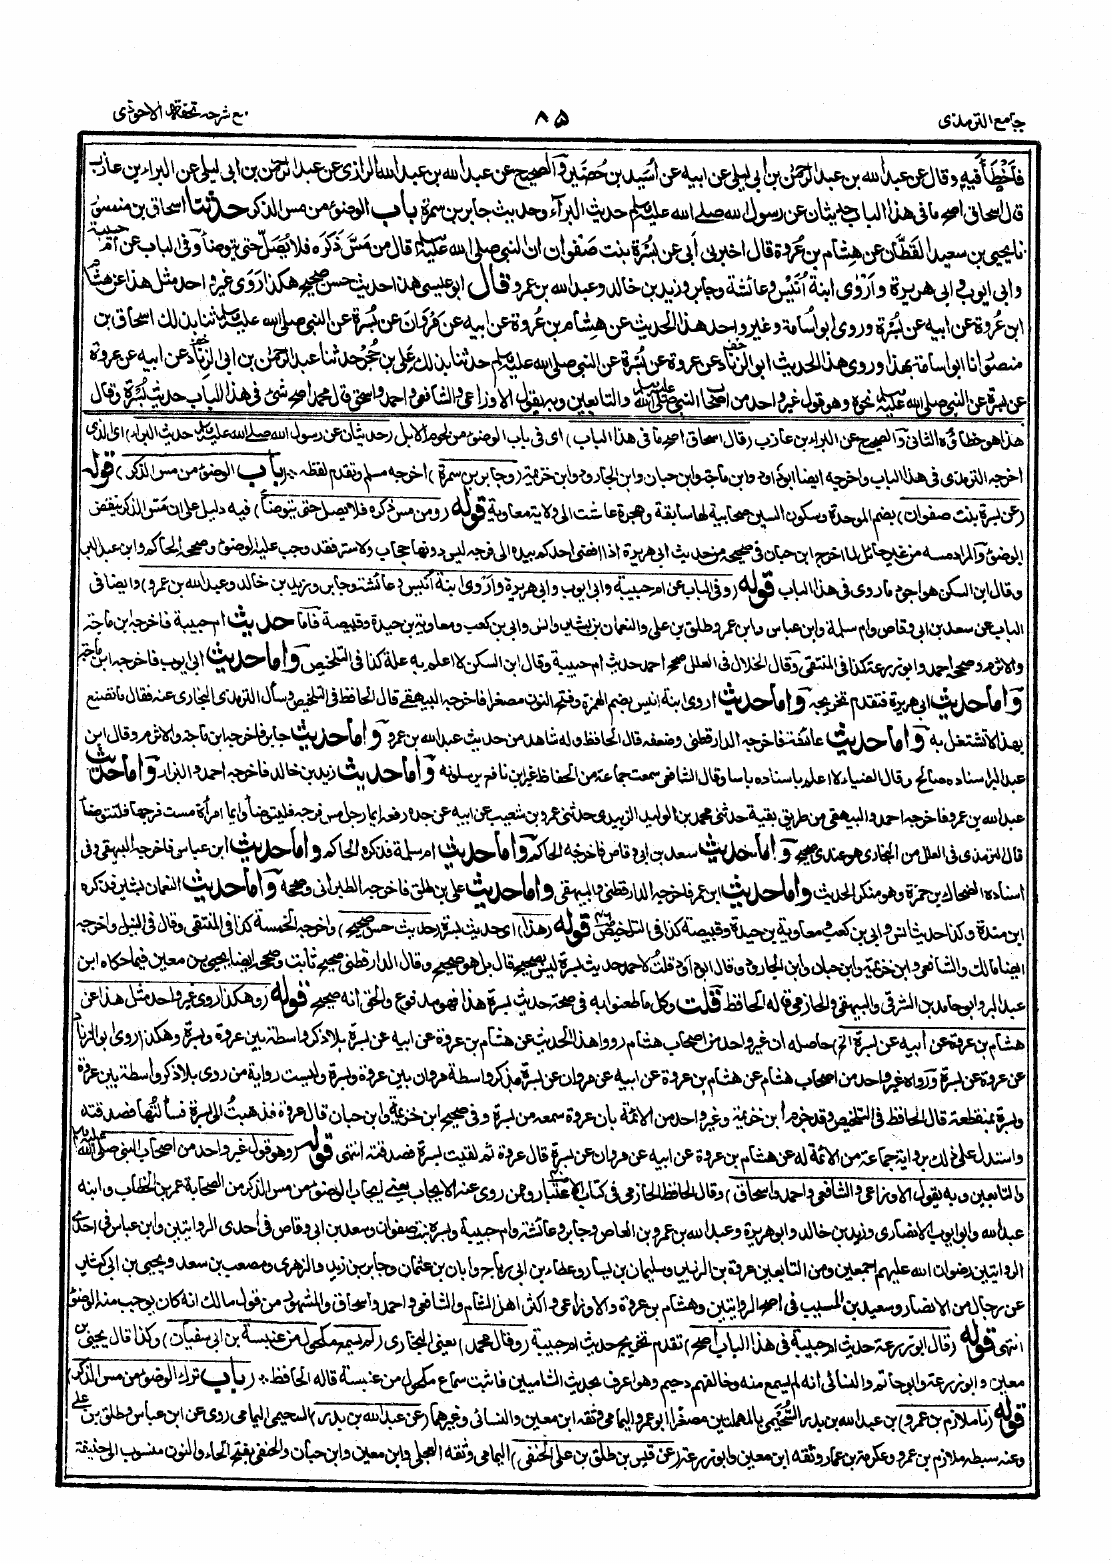 جامع الترمذى ٨٥ مع شرحه تحفة الاحوذى
فأخطأ فيه وقال عن عبد الله بن عبد الرحمن بن أبى ليلى عن ابيه عن أسيد بن حضير والصحيح عن عبد الله بن عبد الله الرازى عن عبد الرحمن بن ابى ليلى عن البراء بن عازب
قال اسحاق اصح ما فى هذا الباب حديثان عن رسول الله صلى الله عليه وسلم حديث البرآء وحديث جابر بن سمرة باب الوضوء من مس الذكر حدثنا اسحاق بن منصور
نا يحيى بن سعيد القطان عن هشام بن عروة قال اخبرنى أبى عن بسرة بنت صفوان ان النبى صلى الله عليه وسلم قال من مس ذكره فلا يصل حتى يتوضأ وفى الباب عن أم حبيبة
وابى ايوب وابى هريرة وأروى ابنة أنيس وعائشة وجابر وزيد بن خالد وعبد الله بن عمرو قال ابو عيسى هذا حديث حسن صحيح هكذا روى غير واحد مثل هذا عن هشام
ابن عروة عن ابيه عن بسرة وروى ابو أسامة وغير واحد هذا الحديث عن هشام بن عروة عن ابيه عن مروان عن بسرة عن النبى صلى الله عليه وسلم ثنا بذلك اسحاق بن
منصور انا ابو اسامة بهذا وروى هذا الحديث ابو الزناد عن عروة عن بسرة عن النبى صلى الله عليه وسلم حدثنا بذلك على بن حجر حدثنا عبد الرحمن بن ابى الزناد عن ابيه عن عروة
عن بسرة عن النبى صلى الله عليه وسلم نحوه وهو قول غير واحد من اصحاب النبى صلى الله عليه وسلم والتابعين وبه يقول الاوزاعى والشافعى واحمد واسحق قال محمد اصح شئ فى هذا الباب حديث بسرة وقال
هذا هو خطاؤه الثانى والصحيح عن البراء بن عازب (قال اسحاق اصح ما فى هذا الباب) اى فى باب الوضوء من لحوم الابل (حديثان عن رسول الله صلى الله عليه وسلم حديث البراء) اى الذى
اخرجه الترمذى فى هذا الباب واخرجه ايضا ابو داود وابن ماجة وابن حبان وابن الجارود وابن خزيمة (وجابر بن سمرة) اخرجه مسلم وتقدم لفظه (باب الوضوء من مس الذكر) قوله
(عن بسرة بنت صفوان) بضم الموحدة وسكون السين صحابية لها سابقة وهجرة عاشت الى ولاية معاوية قوله (ومن مس ذكره فلا يصل حتى يتوضأ) فيه دليل على ان مس الذكر ينقض
الوضوء والمراد مسه من غير حائل لما اخرج ابن حبان فى صحيحه من حديث ابى هريرة اذا افضى احدكم بيده الى فرجه ليس دونها حجاب ولا ستر فقد وجب عليه الوضوء وصححه الحاكم وابن عبد البر
وقال ابن السكن هو اجود ما روى فى هذا الباب قوله (وفى الباب عن ام حبيبة وابى ايوب وابى هريرة وأروى ابنة أنيس وعائشة وجابر وزيد بن خالد وعبد الله بن عمرو) وايضا فى
الباب عن سعد بن ابى وقاص وام سلمة وابن عباس وابن عمر وطلق بن على والنعمان بن بشير وانس وابى بن كعب ومعاوية بن حيدة وقبيصة فاما حديث ام حبيبة فاخرجه ابن ماجه
والاثرم وصححه احمد وابو زرعة كذا فى المنتقى وقال الخلال فى العلل صحح احمد حديث ام حبيبة وقال ابن السكن لا اعلم به علة كذا فى التلخيص واما حديث ابى ايوب فاخرجه ابن ماجه
واما حديث ابى هريرة فتقدم تخريجه واما حديث اروى ابنة انيس بضم الهمزة وفتح النون مصغرا فاخرجه البيهقى قال الحافظ فى التلخيص وسأل الترمذى البخارى عنه فقال ما تصنع
بهذا لا تشتغل به واما حديث عائشة فاخرجه الدارقطنى وضعفه قال الحافظ وله شاهد من حديث عبد الله بن عمرو واما حديث جابر فاخرجه ابن ماجة والاثرم وقال ابن
عبد البر اسناده صالح وقال الضياء لا اعلم باسناده باسا وقال الشافعى سمعت جماعة من الحفاظ غير ابن نافع يرسلونه واما حديث زيد بن خالد فاخرجه احمد والبزار واما حديث
عبد الله بن عمرو فاخرجه احمد والبيهقى من طريق بقية حدثنى محمد بن الوليد الزبيدى حدثنى عمرو بن شعيب عن ابيه عن جده رفعه ايما رجل مس فرجه فليتوضأ وايما امرأة مست فرجها فلتتوضأ
قال الترمذى فى العلل عن البخارى هو عندى صحيح واما حديث سعد بن ابى وقاص فاخرجه الحاكم واما حديث ام سلمة فذكره الحاكم واما حديث ابن عباس فاخرجه البيهقى وفى
اسناده الضحاك بن حمزة وهو منكر الحديث واما حديث ابن عمر فاخرجه الدارقطنى والبيهقى واما حديث على بن طلق فاخرجه الطبرانى وصححه واما حديث النعمان بن بشير فذكره
ابن مندة وكذا حديث انس وابى بن كعب ومعاوية بن حيدة وقبيصة كذا فى التلخيص قوله (هذا) اى حديث بسرة (حديث حسن صحيح) واخرجه الخمسة كذا فى المنتقى وقال فى النيل واخرجه
ايضا مالك والشافعى وابن خزيمة وابن حبان وابن الجارود وقال ابو داود قلت لاحمد حديث بسرة ليس بصحيح قال بل هو صحيح وقال الدارقطنى صحيح ثابت وصححه ايضا يحيى بن معين فيما حكاه ابن
عبد البر وابو حامد بن الشرقى والبيهقى والحازمى قاله الحافظ قلت وكل ما طعنوا به فى صحة حديث بسرة هذا فهو مدفوع والحق انه صحيح قوله (وهكذا روى غير واحد مثل هذا عن
هشام بن عروة عن أبيه عن بسرة الخ) حاصله ان غير واحد من اصحاب هشام رووا هذا الحديث عن هشام بن عروة عن ابيه عن بسرة بلا ذكر واسطة بين عروة وبسرة وهكذا روى ابو الزناد
عن عروة عن بسرة ورواه غير واحد من اصحاب هشام عن هشام بن عروة عن ابيه عن مروان عن بسرة بذكر واسطة مروان بين عروة وبسرة وليست رواية من روى بلا ذكر واسطة بين عروة
وبسرة بمنقطعة قال الحافظ فى التلخيص وقد جزم ابن خزيمة وغير واحد من الائمة بان عروة سمعه من بسرة وفى صحيح ابن خزيمة وابن حبان قال عروة فذهبت الى بسرة فسألتها فصدقته
واستدل على ذلك برواية جماعة من الائمة له عن هشام بن عروة عن ابيه عن مروان عن بسرة قال عروة ثم لقيت بسرة فصدقته انتهى قوله (وهو قول غير واحد من اصحاب النبى صلى الله عليه وسلم
والتابعين وبه يقول الاوزاعى والشافعى واحمد واسحاق) وقال الحافظ الحازمى فى كتاب الاعتبار وممن روى عنه الايجاب يعنى ايجاب الوضوء من مس الذكر من الصحابة عمر بن الخطاب وابنه
عبد الله وابو ايوب الانصارى وزيد بن خالد وابو هريرة وعبد الله بن عمرو بن العاص وجابر وعائشة وام حبيبة وبسرة بنت صفوان وسعد بن ابى وقاص فى أحدى الروايتين وابن عباس فى احدى
الروايتين رضوان الله عليهم اجمعين ومن التابعين عروة بن الزبير وسليمان بن يسار وعطاء بن ابى رباح وابان بن عثمان وجابر بن زيد والزهرى ومصعب بن سعد ويحيى بن ابى كثير
عن رجال من الانصار وسعيد بن المسيب فى اصح الروايتين وهشام بن عروة والاوزاعى واكثر اهل الشام والشافعى واحمد واسحاق والمشهور من قول مالك انه كان يوجب منه الوضوء
انتهى قوله (وقال ابو زرعة حديث ام حبيبة فى هذا الباب اصح) تقدم تخريج حديث ام حبيبة (وقال محمد) يعنى البخارى (لم يسمع مكحول من عنبسة بن ابى سفيان) وكذا قال يحيى بن
معين وابو زرعة وابو حاتم والنسائى انه لم يسمع منه وخالفهم دحيم وهو اعرف بحديث الشاميين فاثبت سماع مكحول من عنبسة قاله الحافظ (باب ترك الوضوء من مس الذكر)
قوله (نا ملازم بن عمرو) بن عبد الله بن بدر السحيمى بالمهملتين مصغرا ابو عمرو اليمامى وثقه ابن معين والنسائى وغيرهما (عن عبد الله بن بدر) السحيمى اليمامى روى عن ابن عباس وطلق بن على
وعنه سبطه ملازم بن عمرو وعكرمة بن عمار وثقه ابن معين وابو زرعة (عن قيس بن طلق بن على الحنفى) اليمامى وثقه العجلى وابن معين وابن حبان والحنفى بفتح الحاء والنون منسوب الى حنيفة